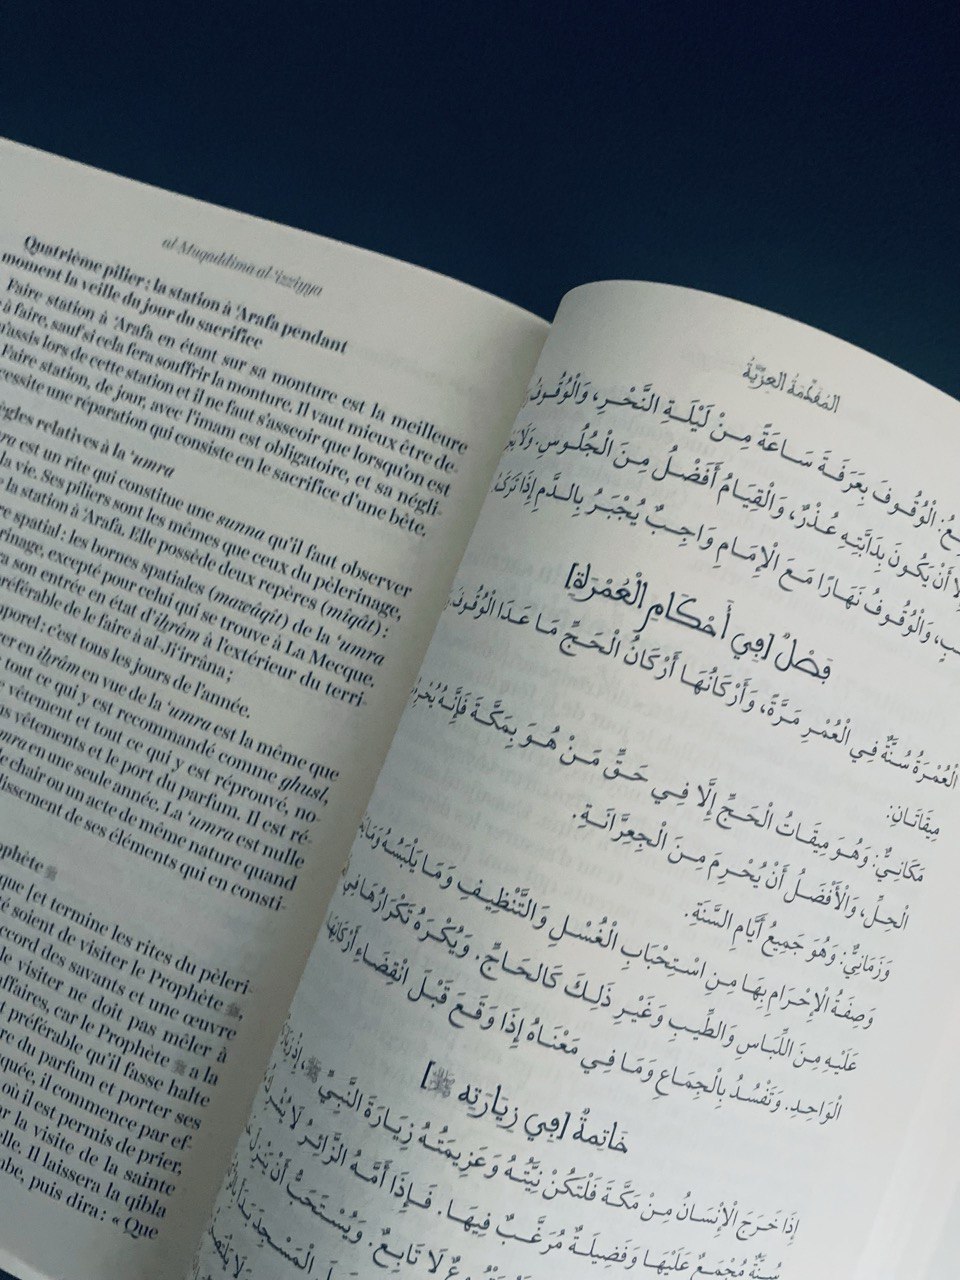 al-Muqaddima al-'izziyya
Quatrième pilier : la station à 'Arafa pendant
moment la veille du jour du sacrifice
Faire station à 'Arafa en étant sur sa monture est la meilleure
à faire, sauf si cela fera souffrir la monture. Il vaut mieux être de-
assis lors de cette station et il ne faut s'asseoir que lorsqu'on est
Faire station, de jour, avec l'imam est obligatoire, et sa négli-
cessite une réparation qui consiste en le sacrifice d'une bête.
ègles relatives à la 'umra
ra est un rite qui constitue une sunna qu'il faut observer
la vie. Ses piliers sont les mêmes que ceux du pèlerinage,
la station à 'Arafa. Elle possède deux repères (mîqât) :
re spatial : les bornes spatiales (mawâqît) de la 'umra
rinage, excepté pour celui qui se trouve à La Mecque.
a son entrée en état d'ihrâm à l'extérieur du terri-
préférable de le faire à al-Ji'irrâna ;
mporel : c'est tous les jours de l'année.
rer en ihrâm en vue de la 'umra est la même que
tout ce qui y est recommandé comme ghusl,
e vêtement et tout ce qui y est réprouvé, no-
ns vêtements et le port du parfum. Il est ré-
mra en une seule année. La 'umra est nulle
e chair ou un acte de même nature quand
lissement de ses éléments qui en consti-
ophète ﷺ
que [et termine les rites du pèleri-
té soient de visiter le Prophète ﷺ,
ccord des savants et une œuvre
le visiter ne doit pas mêler à
affaires, car le Prophète ﷺ a la
t préférable qu'il fasse halte
re du parfum et porter ses
quée, il commence par ef-
où il est permis de prier,
ar la visite de la sainte
elle. Il laissera la qibla
be, puis dira : « Que
المُقَدِّمَةُ العِزِّيَّةُ
الْوُقُوفُ بِعَرَفَةَ سَاعَةً مِنْ لَيْلَةِ النَّحْرِ، وَالْوُقُوفُ
أَنْ يَكُونَ بِدَابَّتِهِ عُذْرٌ، وَالْقِيَامُ أَفْضَلُ مِنَ الْجُلُوسِ. وَلَا
وَالْوُقُوفُ نَهَارًا مَعَ الْإِمَامِ وَاجِبٌ يُجْبَرُ بِالدَّمِ إِذَا تَرَكَ
فَصْلٌ [فِي أَحْكَامِ الْعُمْرَةِ]
الْعُمْرَةُ سُنَّةٌ فِي الْعُمْرِ مَرَّةً، وَأَرْكَانُهَا أَرْكَانُ الْحَجِّ مَا عَدَا الْوُقُوفَ
مِيقَاتَانِ:
مَكَانِيٌّ: وَهُوَ مِيقَاتُ الْحَجِّ إِلَّا فِي حَقِّ مَنْ هُوَ بِمَكَّةَ فَإِنَّهُ يَخْرُجُ
الْحِلِّ، وَالْأَفْضَلُ أَنْ يُحْرِمَ مِنَ الْجِعِرَّانَةِ.
وَزَمَانِيٌّ: وَهُوَ جَمِيعُ أَيَّامِ السَّنَةِ.
وَصِفَةُ الْإِحْرَامِ بِهَا مِنِ اسْتِحْبَابِ الْغُسْلِ وَالتَّنْظِيفِ وَمَا يَلْبَسُهُ وَمَا
عَلَيْهِ مِنَ اللِّبَاسِ وَالطِّيبِ وَغَيْرِ ذَلِكَ كَالحَاجِّ. وَيُكْرَهُ تَكْرَارُهَا فِي
الْوَاحِدِ. وَتَفْسُدُ بِالْجِمَاعِ وَمَا فِي مَعْنَاهُ إِذَا وَقَعَ قَبْلَ انْقِضَاءِ أَرْكَانِهَا
خَاتِمَةٌ [فِي زِيَارَتِهِ ﷺ]
إِذَا خَرَجَ الْإِنْسَانُ مِنْ مَكَّةَ فَلْتَكُنْ نِيَّتُهُ وَعَزِيمَتُهُ زِيَارَةَ النَّبِيِّ ﷺ،
سُنَّةٌ مُجْمَعٌ عَلَيْهَا وَفَضِيلَةٌ مُرَغَّبٌ فِيهَا. فَإِذَا أَمَّهُ الزَّائِرُ لَا
لَا تَابِعٌ. وَيُسْتَحَبُّ أَنْ يَنْزِلَ
الْمَسْجِدِ